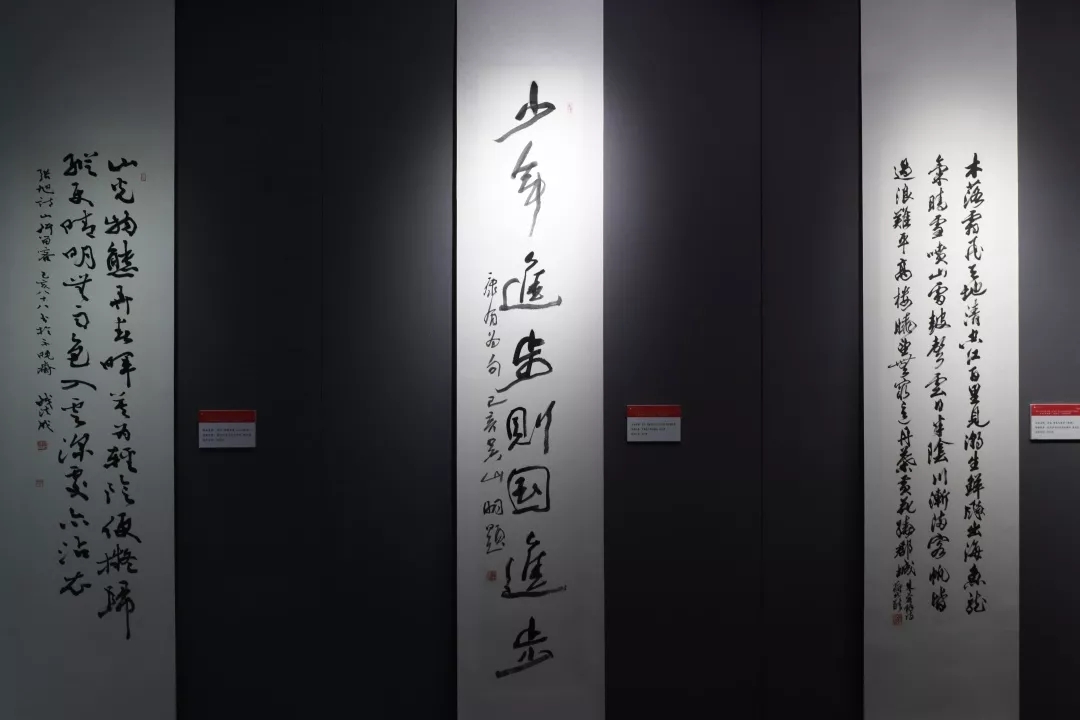 山光物態弄春暉莫为輕陰便擬歸
縱使晴明無雨色入雲深處亦沾衣
張旭詩山行留客 己亥八十八书於 晚齋 钱法成
少年進步則国進步
康有为句己亥吴山明題
木落霜飛天地清空江百里見潮生鮮飈出海魚龍
氣晴雪噴山雷鼓聲雲日半陰川漸满客帆皆
過浪難平高樓曉望無窮意丹葉黄花繞郡城